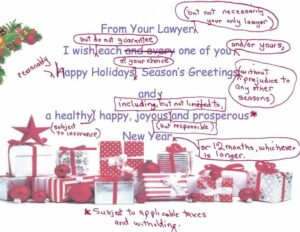 From Your Lawyer,
(but not necessarily your only lawyer)
but do not guarantee
I wish each and every one of you
and/or yours,
of your choice
reasonably
Happy Holidays, Season's Greetings
(without prejudice to any other seasons)
and
including, but not limited to,
a healthy, happy, joyous and prosperous*
subject to insurance
(but responsible)
New Year
or 12 months, whichever is longer.
* Subject to applicable taxes
and witholding.